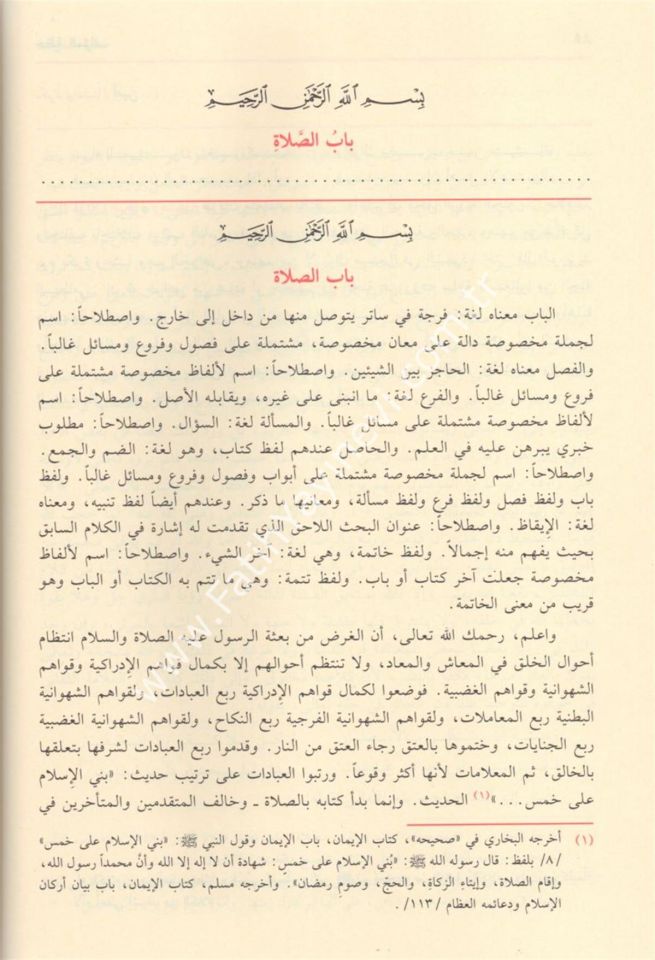 بِسْمِ ٱللَّهِ ٱلرَّحْمَٰنِ ٱلرَّحِيمِ
بابُ الصَّلاةِ
بِسْمِ ٱللَّهِ ٱلرَّحْمَٰنِ ٱلرَّحِيمِ
باب الصلاة
الباب معناه لغة: فرجة في ساتر يتوصل منها من داخل إلى خارج. واصطلاحاً: اسم
لجملة مخصوصة دالة على معان مخصوصة، مشتملة على فصول وفروع ومسائل غالباً.
والفصل معناه لغة: الحاجز بين الشيئين. واصطلاحاً: اسم لألفاظ مخصوصة مشتملة على
فروع ومسائل غالباً. والفرع لغة: ما انبنى على غيره، ويقابله الأصل. واصطلاحاً: اسم
لألفاظ مخصوصة مشتملة على مسائل غالباً. والمسألة لغة: السؤال. واصطلاحاً: مطلوب
خبري يبرهن عليه في العلم. والحاصل عندهم لفظ كتاب، وهو لغة: الضم والجمع.
واصطلاحاً: اسم لجملة مخصوصة مشتملة على أبواب وفصول وفروع ومسائل غالباً. ولفظ
باب ولفظ فصل ولفظ فرع ولفظ مسألة، ومعانيها ما ذكر. وعندهم أيضاً لفظ تنبيه، ومعناه
لغة: الإيقاظ. واصطلاحاً: عنوان البحث اللاحق الذي تقدمت له إشارة في الكلام السابق
بحيث يفهم منه إجمالاً. ولفظ خاتمة، وهي لغة: آخر الشيء. واصطلاحاً: اسم لألفاظ
مخصوصة جعلت آخر كتاب أو باب. ولفظ تتمة: وهي ما تتم به الكتاب أو الباب وهو
قريب من معنى الخاتمة.
واعلم، رحمك الله تعالى، أن الغرض من بعثة الرسول عليه الصلاة والسلام انتظام
أحوال الخلق في المعاش والمعاد، ولا تنتظم أحوالهم إلا بكمال قواهم الإدراكية وقواهم
الشهوانية وقواهم الغضبية. فوضعوا لكمال قواهم الإدراكية ربع العبادات، ولقواهم الشهوانية
البطنية ربع المعاملات، ولقواهم الشهوانية الفرجية ربع النكاح، ولقواهم الشهوانية الغضبية
ربع الجنايات، وختموها بالعتق رجاء العتق من النار. وقدموا ربع العبادات لشرفها بتعلقها
بالخالق، ثم المعلامات لأنها أكثر وقوعاً. ورتبوا العبادات على ترتيب حديث: «بني الإسلام
على خمس...»(١) الحديث. وإنما بدأ كتابه بالصلاة ـ وخالف المتقدمين والمتأخرين في
(١) أخرجه البخاري في «صحيحه»، كتاب الإيمان، باب الإيمان وقول النبي ﷺ: «بني الإسلام على خمس»
/٨/ بلفظ: قال رسوله الله ﷺ: «بُني الإسلام على خمسٍ: شهادة أن لا إله إلا الله وأنَّ محمداً رسول الله،
وإقام الصلاة، وإيتاءِ الزكاةِ، والحجّ، وصومِ رمضان». وأخرجه مسلم، كتاب الإيمان، باب بيان أركان
الإسلام ودعائمه العظام /١١٣/.
www.Fatihyayinevi.com.tr